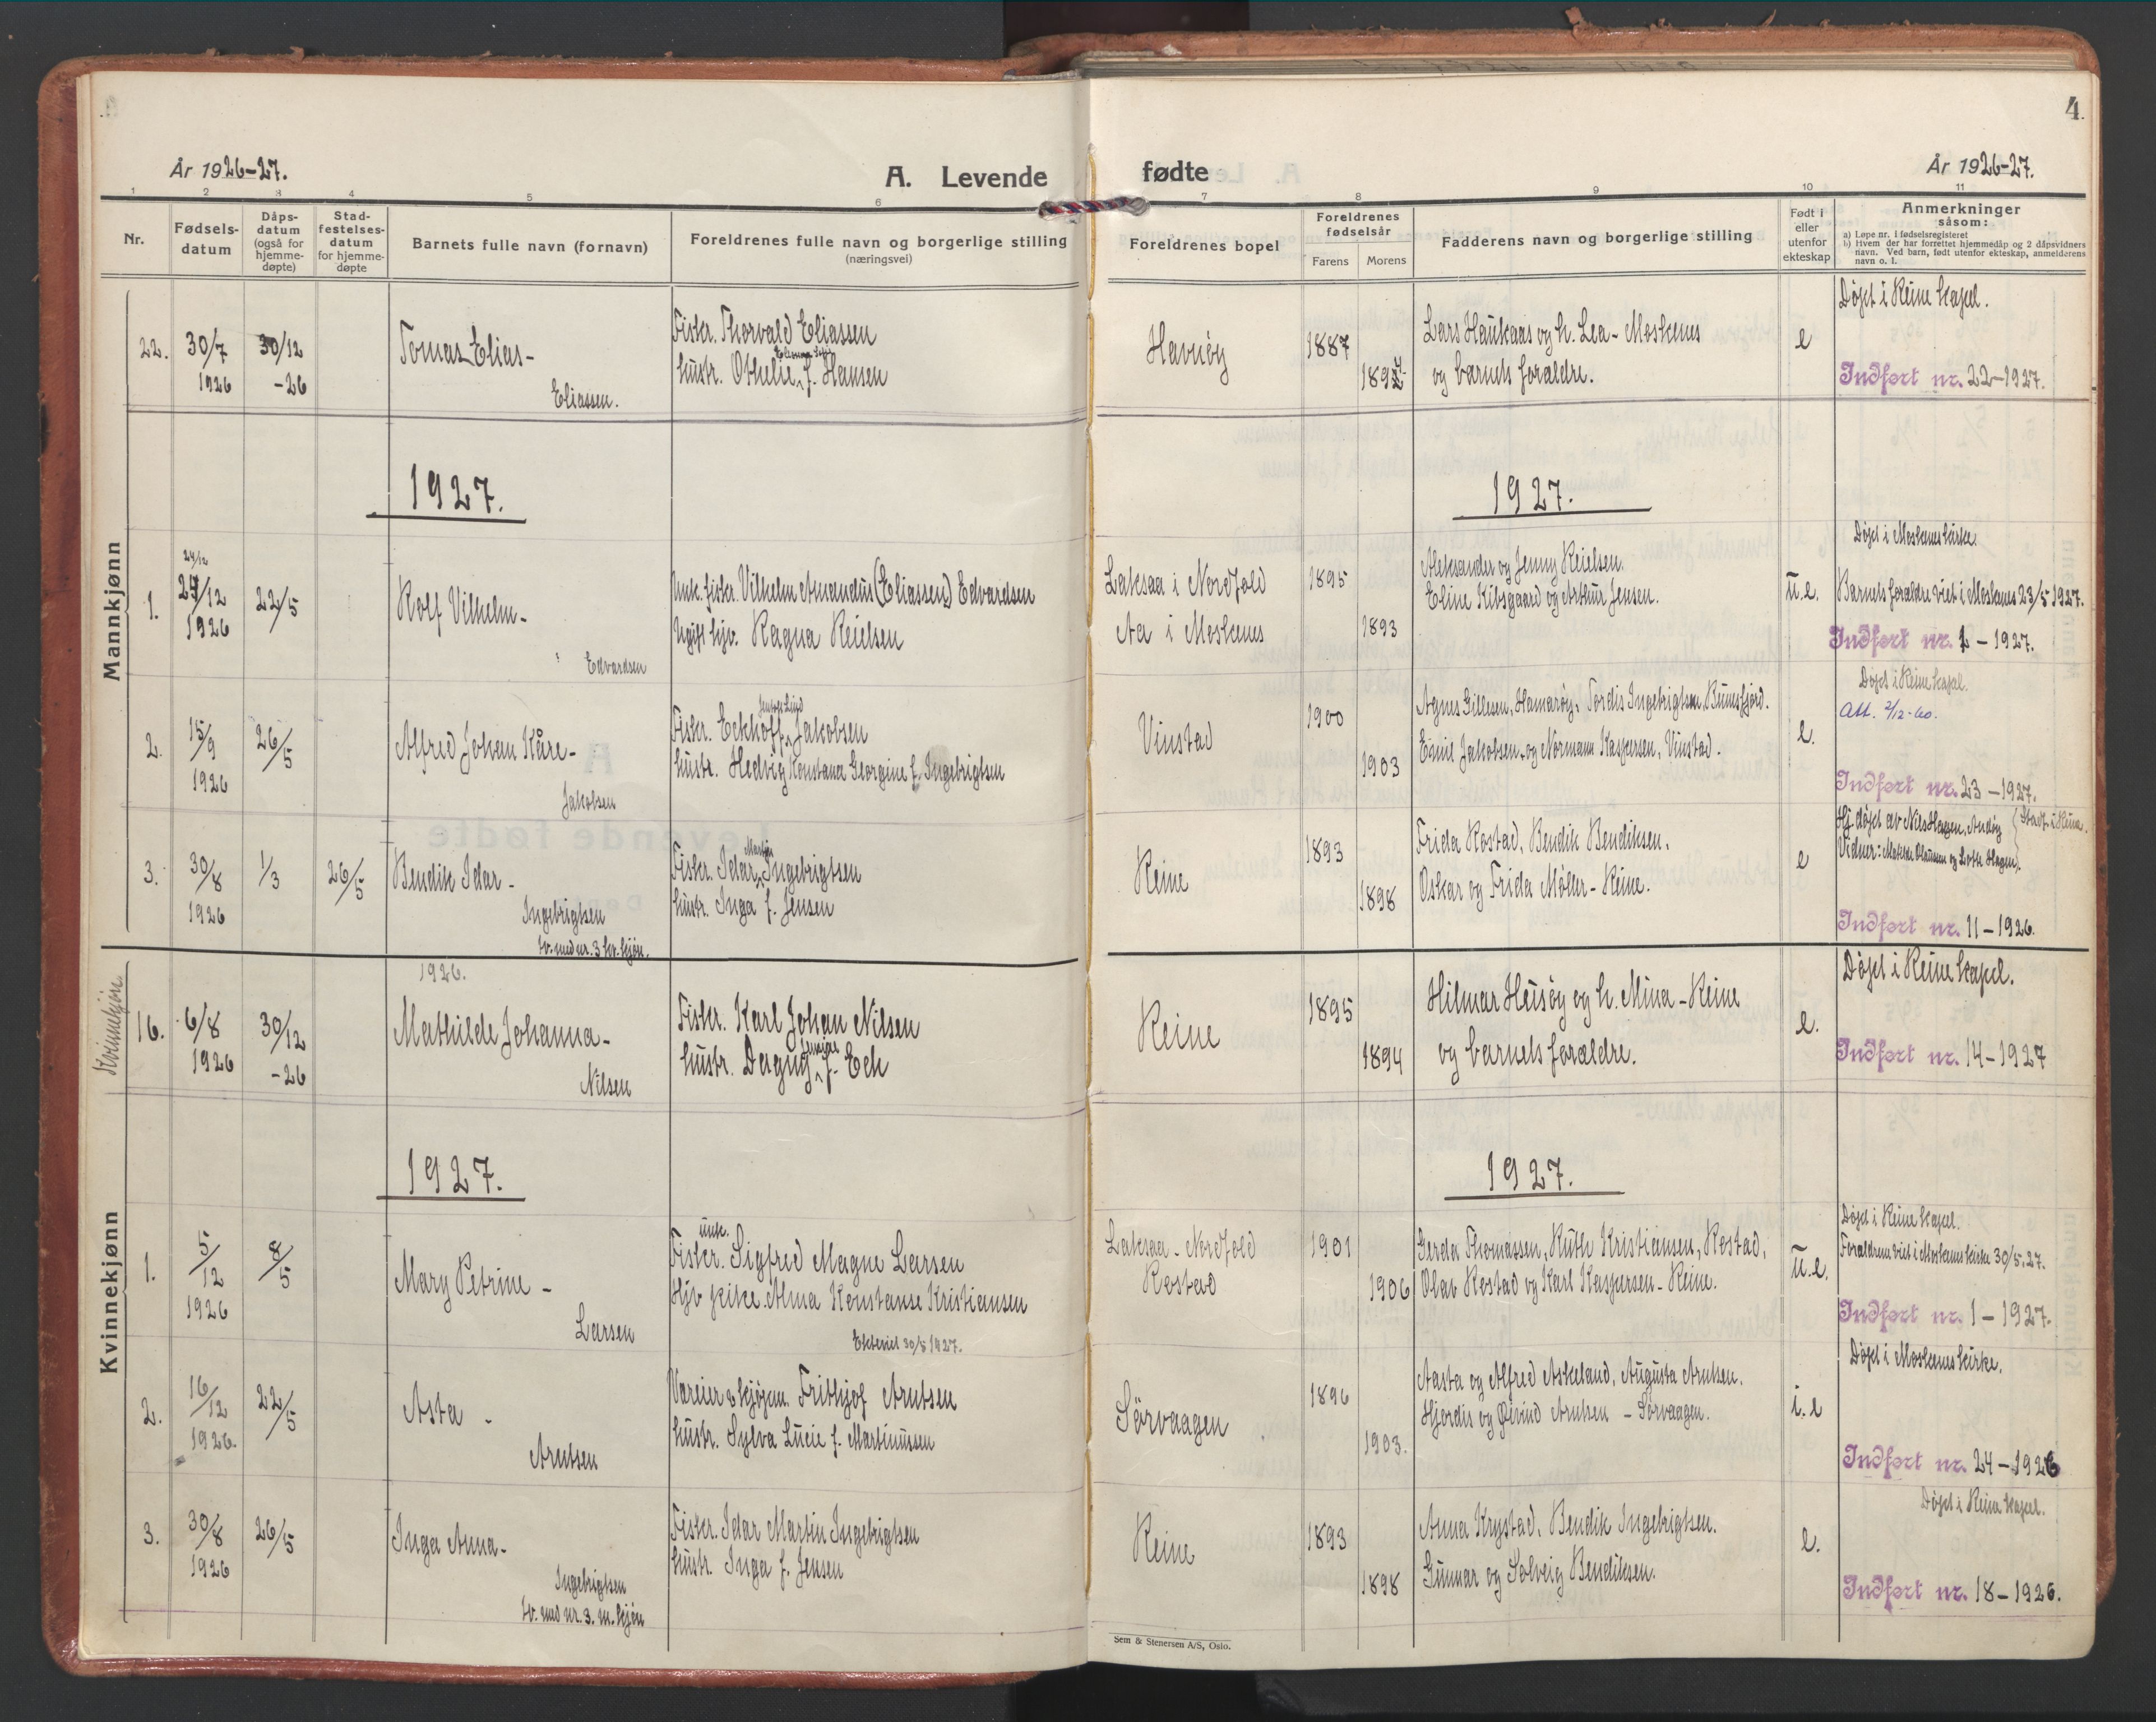 År 1926-27.
A. Levende
1 2 3 4 5 6
Nr.
Fødsels-datum
Dåps-datum (også for hjemme-døpte)
Stad-festelses-datum for hjemme-døpte
Barnets fulle navn (fornavn)
Foreldrenes fulle navn og borgerlige stilling
(næringsvei)
Mannkjønn
22. 30/7 30/12 Tomas Elias- Fiskr. Thorvald Eliassen
1926 -26 Eliassen. hustr. Othelie f. Hansen
1927.
24/12
1. 27/12 22/5 Rolf Vilhelm- Unk. fiskr. Vilhelm Amandus (Eliassen) Edvardsen
1926 Ugift hjv. Ragna Reielsen
Edvardsen
2. 15/9 26/5 Alfred Johan Kåre- Fiskr. Eckhoff Jakobsen
1926 hustr. Hedvig Konstanse Georgine f. Ingebrigtsen
Jakobsen
3. 30/8 1/3 26/5 Bendik Idar- Fiskr. Idar Martin Ingebrigtsen
1926 Ingebrigtsen hustr. Inga f. Jensen
tv. med nr. 3 kv. kjøn.
Kvinnekjøn
1926.
16. 6/8 30/12 Mathilde Johanna- Fiskr. Karl Johan Nilsen
1926 -26 Nilsen hustr. Dagny f. Eck
1927.
Kvinnekjønn
unk.
1. 5/12 8/5 Mary Petrine- Fiskr. Sigfred Magne Larsen
1926 Hjv pike. Alma Konstanse Kristiansen
Larsen
Ekteviet 30/5 1927.
2. 16/12 22/5 Asta- Væreier & skjøpm. Frithjof Arntsen
1926. Arntsen hustr. Sylva Lucie f. Martinussen
3. 30/8 26/5 Inga Anna- Fiskr. Idar Martin Ingebrigtsen
1926 Ingebrigtsen hustr. Inga f. Jensen
tv. med nr. 3. m. kjøn
4.
fødte
År 1926-27.
7 8 9 10 11
Foreldrenes bopel
Foreldrenes fødselsår
Farens Morens
Fadderens navn og borgerlige stilling
Født i eller utenfor ekteskap
Anmerkninger
såsom:
a) Løpe nr. i fødselsregisteret
b) Hvem der har forrettet hjemmedåp og 2 dåpsvidners
navn. Ved barn, født utenfor ekteskap, anmelderens
navn o. l.
Døpt i Reine kapel.
Havnøy 1887 Lars Haukaas og h. Lea- Moskenes e
og barnets forældre.
Indført nr. 22-1927.
1927.
Døpt i Moskenes kirke.
Laksaa i Nordfold 1895 Aleksander og Jenny Reielsen.
Eline Kibsgaard og Arthur Jensen. u.e. Barnets forældre viet i Moskenes 23/5 1927.
Aa i Moskenes 1893 Indført nr. 1-1927.
Døpt i Reine kapel.
Vinstad 1900 Agnes Gillesen, Hamarøy, Tordis Ingebrigtsen, Bunesfjord.
Att. 2/12-60.
1903 Emil Jakobsen og Normann Kaspersen, Vinstad. e.
Indført nr. 23-1927.
Reine 1893 Frida Rostad, Bendik Bendiksen. e Hj døpt av Nils Hagen, Andøy
Stadf. i Reine.
1898 Oskar og Frida Møller- Reine.
Indført nr. 11-1926.
Døpt i Reine kapel.
Reine 1895 Hilmar Heisøy og h. Mina-Reine e.
1894 og barnets forældre. Indført nr. 14-1927
1927.
Døpt i Reine kapel.
Laksaa-Nordfold 1901 Gerda Thomassen, Ruth Kristiansen, Rostad, u.e. Forældrene viet i Moskenes kirke 30/5.27.
Rostad 1906 Olav Rostad og Karl Kaspersen-Reine.
Indført nr. 1-1927.
Døpt i Moskenes kirke.
Sørvaagen 1896 Aasta og Alfred Askeland, Augusta Arntsen. i.e
1903. Hjordis og Øivind Arntsen - Sørvaagen.
Indført nr. 24-1926
Døpt i Reine kapel.
Reine 1893 Anna Krystad, Bendik Ingebrigtsen. e.
1898 Gunnar og Solveig Bendiksen.
Indført nr. 18-1926.
Sem & Stenersen A/S, Oslo.